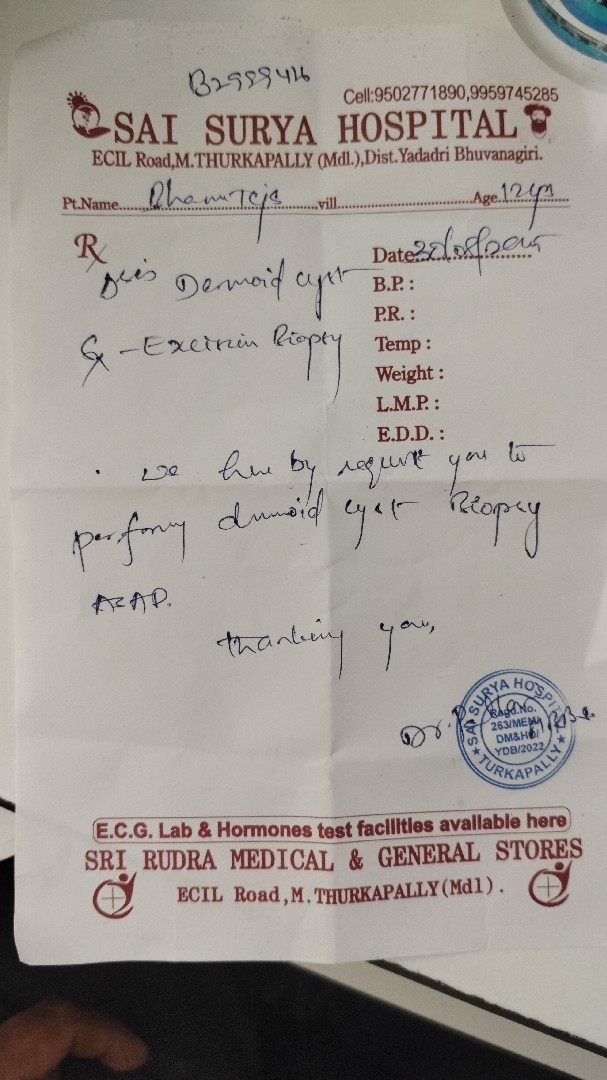 B2999416
Cell:9502771890,9959745285
SAI SURYA HOSPITAL
ECIL Road,M.THURKAPALLY (Mdl.),Dist.Yadadri Bhuvanagiri.
Pt.Name..........vill..........Age.12yrs
Rx
Date
Dermoid cyst
B.P. :
P.R. :
Biopsy
Temp :
Weight :
L.M.P. :
E.D.D. :
we here by request you to
perform dermoid cyst Biopsy
ASAP.
thanking you,
Dr.
SAI SURYA HOSPITAL
Regd.No.
263/MEMA
DM&HO/
YDB/2022
★ TURKAPALLY ★
E.C.G. Lab & Hormones test facilities available here
SRI RUDRA MEDICAL & GENERAL STORES
ECIL Road,M.THURKAPALLY(Mdl).